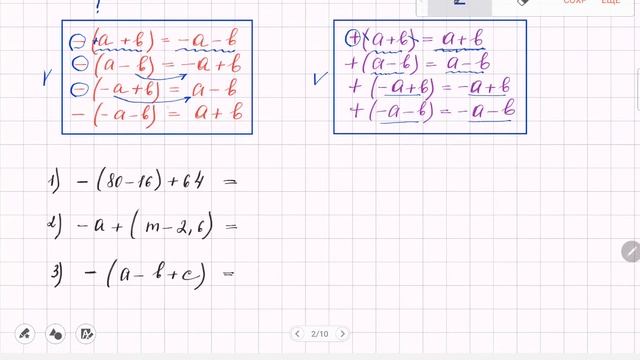 СОХР ЕЩЕ
-(+a+b) = -a-b
-(a-b) = -a+b
-(-a+b) = a-b
-(-a-b) = a+b
+(a+b) = a+b
+(a-b) = a-b
+(-a+b) = -a+b
+(-a-b) = -a-b
1) -(80-16)+64 =
2) -a+(m-2,6) =
3) -(a-b+c) =
2/10